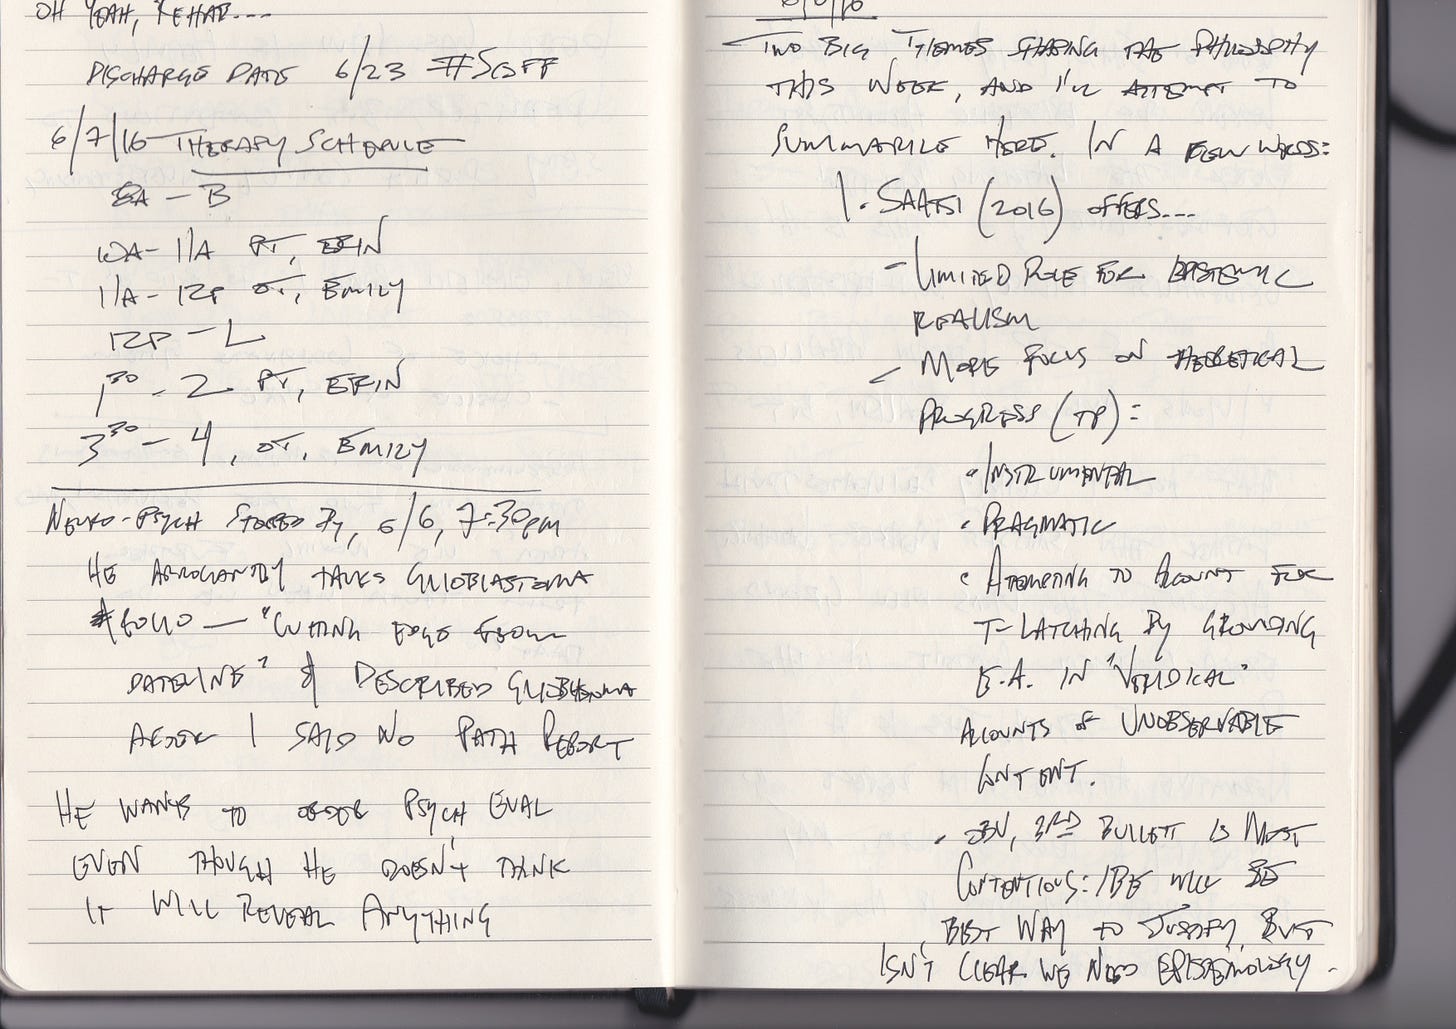 OH YEAH, REHAB...
DISCHARGE DATE 6/23
6/7/16 THERAPY SCHEDULE
8A – B
10A – 11A PT, ERIN
11A – 12P OT, EMILY
12P – L
1³⁰ – 2 PT, ERIN
3³⁰ – 4, OT, EMILY
NEURO-PSYCH STOPPED BY, 6/6, 7:30pm
HE ARROGANTLY TALKS GLIOBLASTOMA
& — "CUTTING EDGE FROM
DATELINE" & DESCRIBED GLIOBLASTOMA
AFTER I SAID NO PATH REPORT
HE WANTS TO ORDER PSYCH EVAL
EVEN THOUGH HE DOESN'T THINK
IT WILL REVEAL ANYTHING
– TWO BIG THEMES SHAPING THE PHILOSOPHY
THIS WEEK, AND I'LL ATTEMPT TO
SUMMARIZE HERE. IN A FEW WORDS:
1. SAATSI (2016) OFFERS...
– LIMITED ROLE FOR EPISTEMIC
REALISM
– MORE FOCUS ON THEORETICAL
PROGRESS (TP):
• INSTRUMENTAL
• PRAGMATIC
• ATTEMPTING TO ACCOUNT FOR
T-LATCHING BY GROUNDING
E.A. IN "VERIDICAL"
ACCOUNTS OF UNOBSERVABLE
CONTENT.
• OBV, 3RD BULLETT IS MOST
CONTENTIOUS: IBE WILL BE
BEST WAY TO JUSTIFY, BUT
ISN'T CLEAR WE NEED EPISTEMOLOGY.